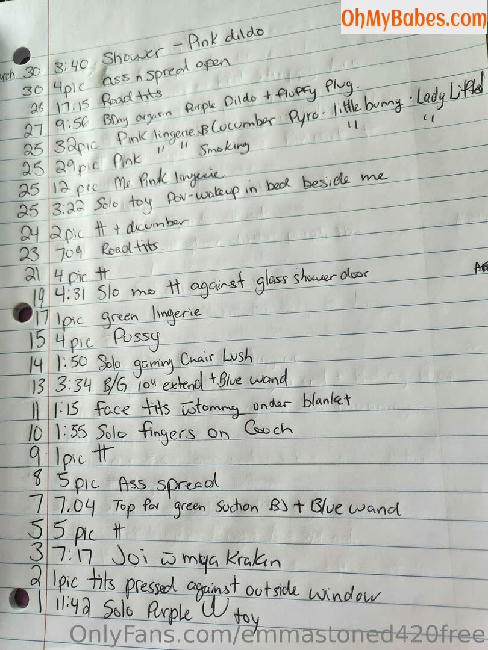 OhMyBabes.com
30 8:40 Shower - Pink dildo
30 4pic ass n Spread open
28 17:15 Road tits
27 9:56 orgasm Purple Dildo + Fluffy Plug
25 38pic Pink lingerie B Cucumber Pyro: little bunny: Lady
25 29pic Pink " " Smoking " "
25 12 pic Me Pink lingerie
25 3:22 Solo toy Pov-wakeup in bed beside me
24 2pic tt + cucumber
23 7:09 Road tits
21 4 pic tt
19 4:31 Slo mo tt against glass shower door
17 1pic green lingerie
15 4pic Pussy
14 1:50 Solo gaming Chair Lush
13 3:34 B/G you extend + Blue wand
11 1:15 Face tits w tommy under blanket
10 1:55 Solo fingers on Couch
9 1pic tt
8 5pic Ass spread
7 7:04 Top for green Suction BJ + Blue wand
5 5 pic tt
3 7:17 Joi w mya Kraken
2 1pic tits pressed against outside window
1 11:42 Solo Purple U toy
OnlyFans.com/emmastoned420free